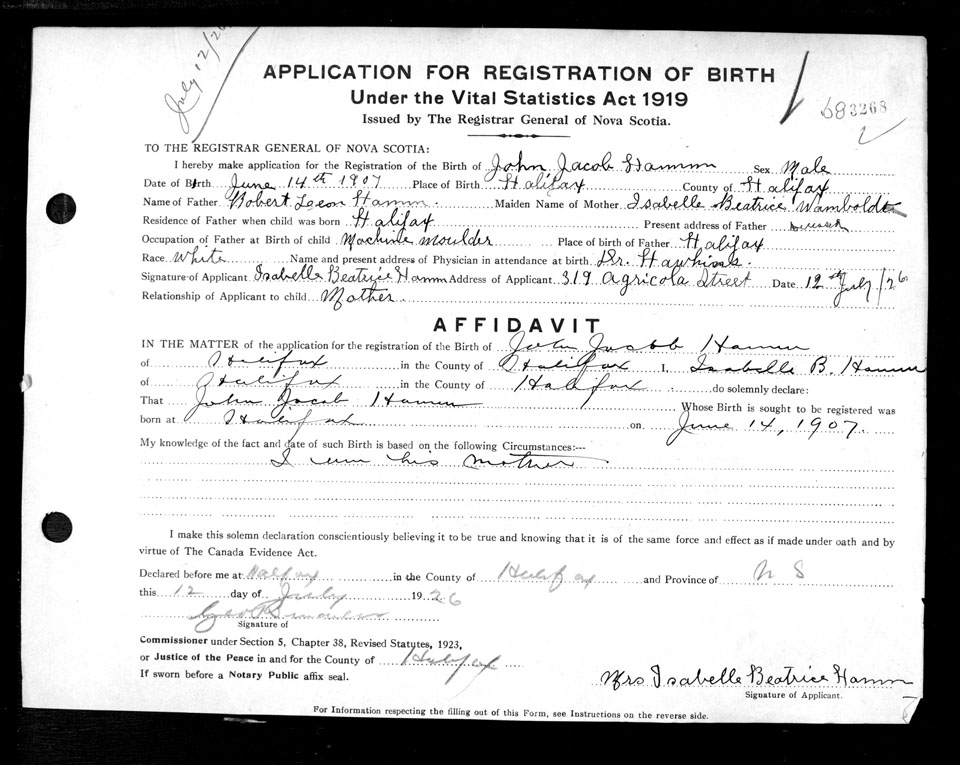 July 12/26
APPLICATION FOR REGISTRATION OF BIRTH
Under the Vital Statistics Act 1919
Issued by The Registrar General of Nova Scotia.
683268
2
TO THE REGISTRAR GENERAL OF NOVA SCOTIA:
I hereby make application for the Registration of the Birth of John Jacob Hamm Sex Male
Date of Birth June 14th 1907 Place of Birth Halifax County of Halifax
Name of Father Robert Leon Hamm. Maiden Name of Mother Isabelle Beatrice Wamboldt
Residence of Father when child was born Halifax Present address of Father
Occupation of Father at Birth of child Machine Moulder Place of birth of Father Halifax
Race White Name and present address of Physician in attendance at birth Dr. Hawkins.
Signature of Applicant Isabelle Beatrice Hamm Address of Applicant 319 Agricola Street Date 12th July /26
Relationship of Applicant to child Mother.
AFFIDAVIT
IN THE MATTER of the application for the registration of the Birth of John Jacob Hamm
of Halifax in the County of Halifax I, Isabelle B. Hamm
of Halifax in the County of Halifax do solemnly declare:
That John Jacob Hamm Whose Birth is sought to be registered was
born at Halifax on June 14, 1907.
My knowledge of the fact and date of such Birth is based on the following Circumstances:---
I am his mother
I make this solemn declaration conscientiously believing it to be true and knowing that it is of the same force and effect as if made under oath and by
virtue of The Canada Evidence Act.
Declared before me at Halifax in the County of Halifax and Province of N S
this 12 day of July 1926
Geo
Signature of
Commissioner under Section 5, Chapter 38, Revised Statutes, 1923,
or Justice of the Peace in and for the County of Halifax
If sworn before a Notary Public affix seal.
Mrs Isabelle Beatrice Hamm
Signature of Applicant.
For Information respecting the filling out of this Form, see Instructions on the reverse side.